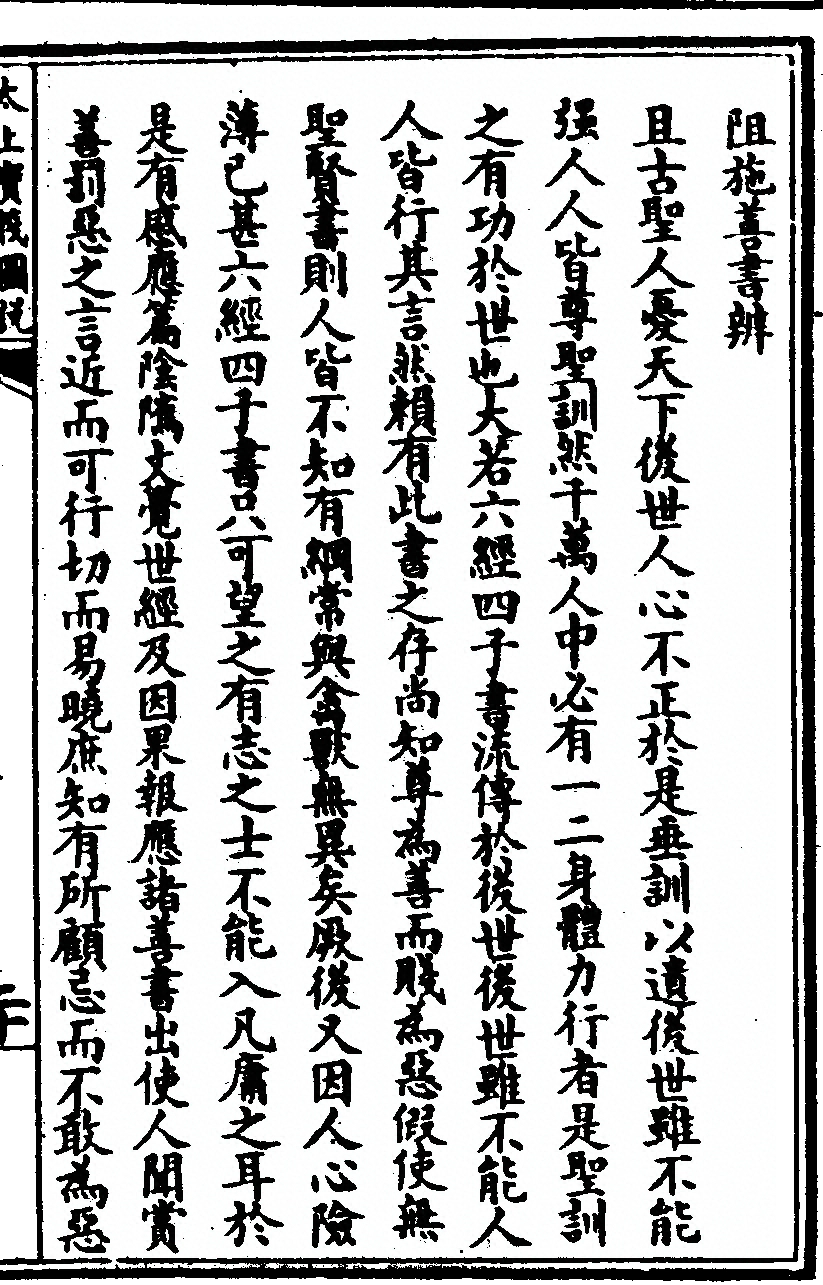 阻施善書辨
且古聖人憂天下後世人心不正於是垂訓以遺後世雖不能
强人人皆尊聖訓然千萬人中必有一二身體力行者是聖訓
之有功於世也大若六經四子書流傳於後世後世雖不能人
人皆行其言然賴有此書之存尚知尊為善而賤為惡假使無
聖賢書則人皆不知有綱常與禽獸無異矣厥後又因人心險
薄已甚六經四子書只可望之有志之士不能入凡庸之耳於
是有感應篇陰隲文覺世經及因果報應諸善書出使人聞賞
善罰惡之言近而可行切而易曉庶知有所顧忌而不敢為惡
太上寶筏圖説